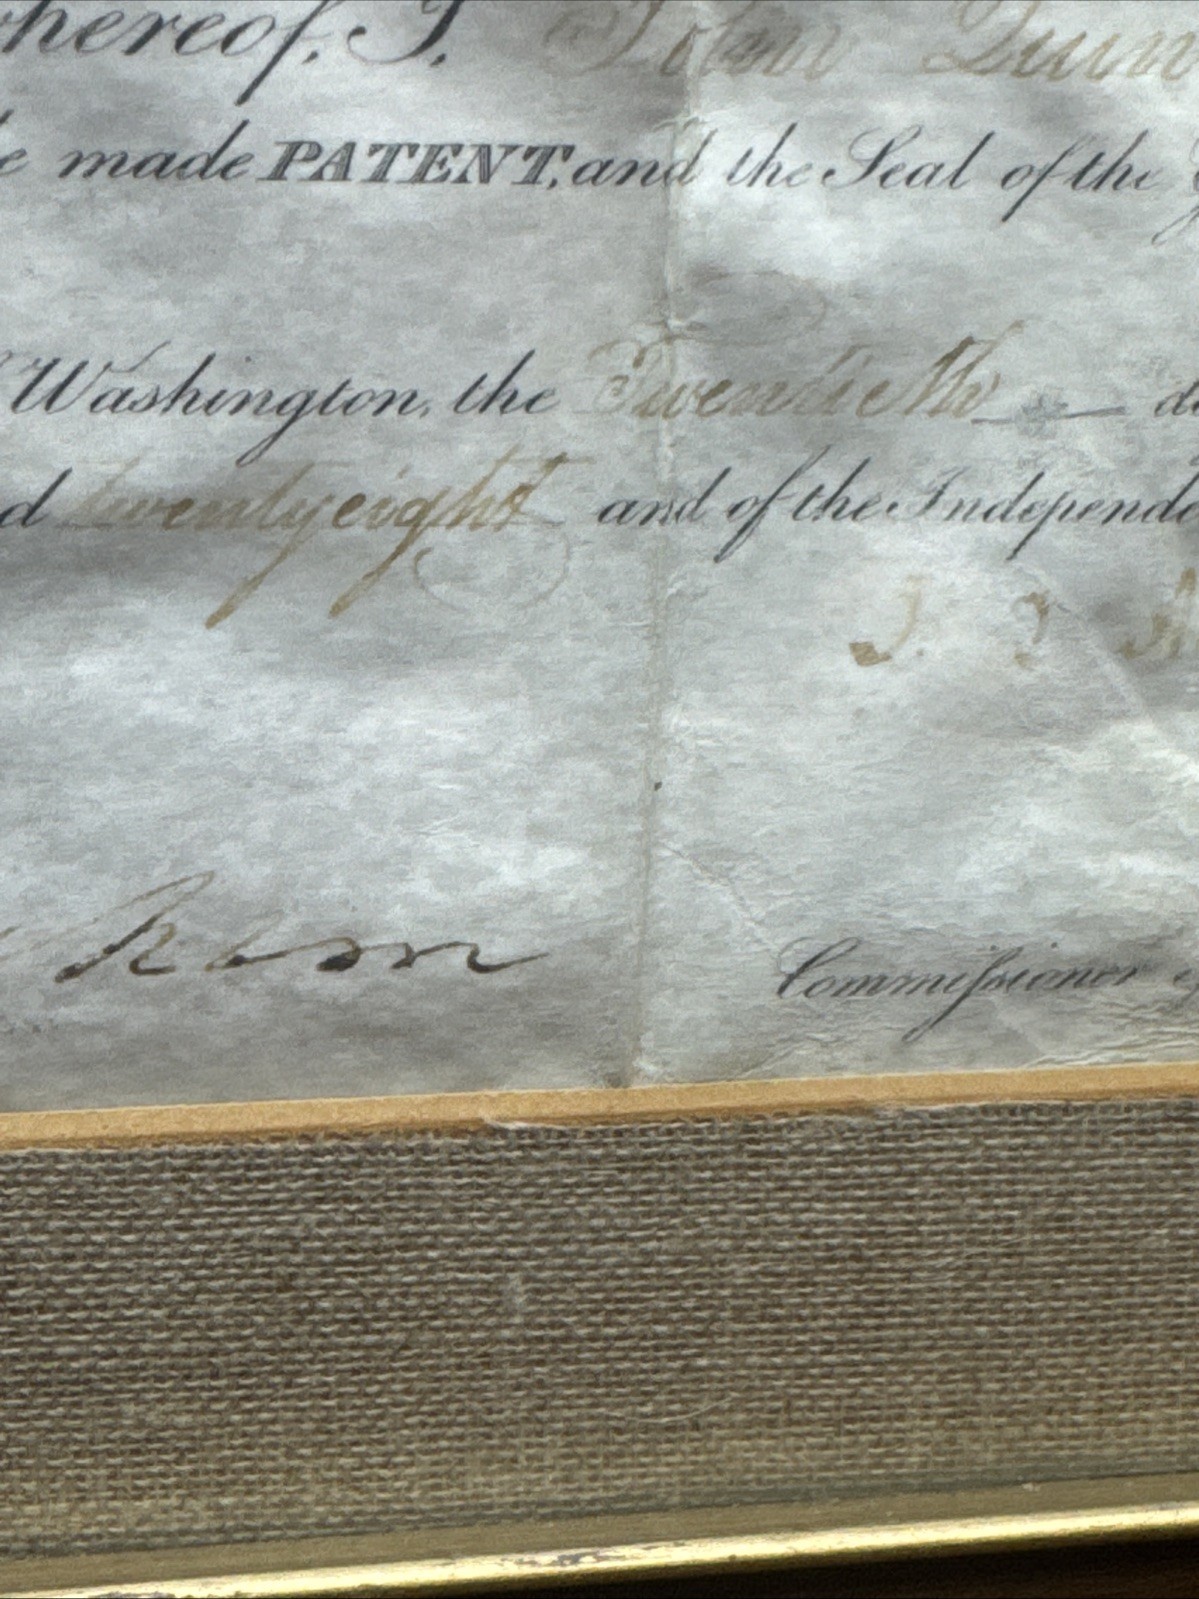 hereof, I, John Quin
made PATENT, and the Seal of the
Washington, the Twentieth
twentyeight and of the Independ
J. 2
Commissioner